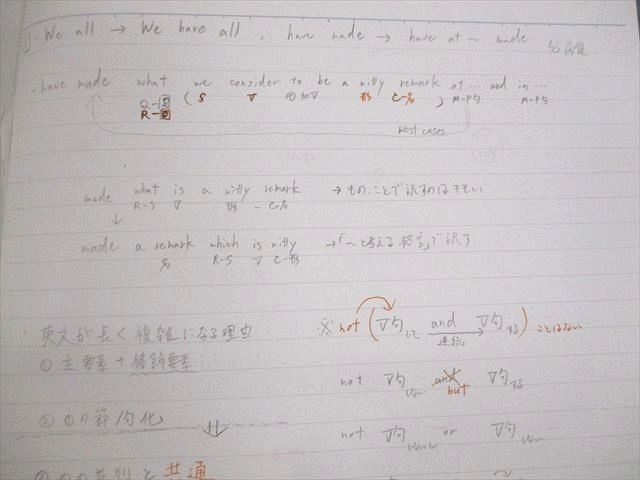 j. We all → We have all , have made → have at ~ made 分離
. have made what we consider to be a witty remark at … and in …
( S V ① to V 形 C-名 ) M-P句 M-P句
most cases
made what is a witty remark → もの、ことで訳すのは
R-S V 形 - C-名
↓
made a remark which is witty →「~と考える発言」で訳す
名 R-S V C-形
・英文が長く複雑になる理由
① 主要素 + 修飾要素
② ①の節句化
⇓
共通
※ not ( V句して and V句する ) ことはない
連続
not V句 and but V句する
not V句 or V句